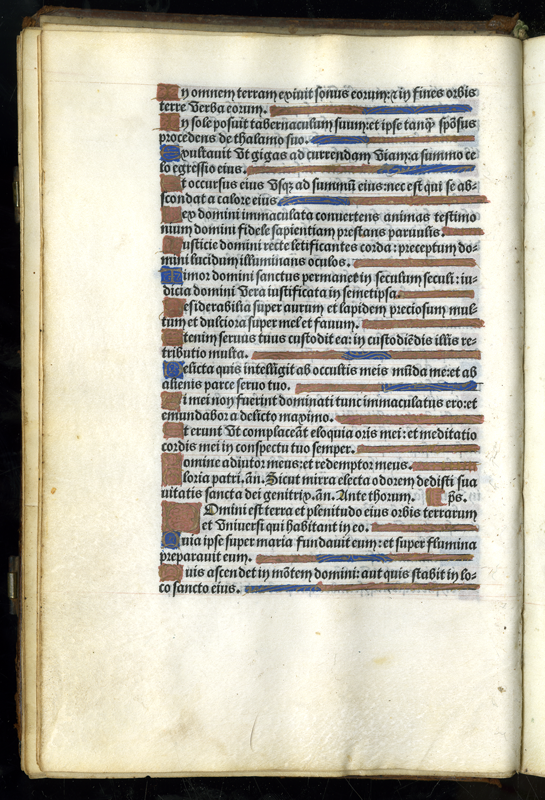 In omnem terram exivit sonus eorum: et in fines orbis
terre verba eorum.
In sole posuit tabernaculum suum: et ipse tanq̃ spõsus
procedens de thalamo suo.
Exultauit vt gigas ad currendam viam: a summo ce-
lo egressio eius.
Et occursus eius vsq̃ ad summũ eius: nec est qui se abs-
condat a calore eius.
Lex domini immaculata conuertens animas testimo
nium domini fidele sapientiam prestans paruulis.
Iusticie domini recte letificantes corda: preceptum do-
mini lucidum illuminans oculos.
Timor domini sanctus permanet in seculum seculi: iu-
dicia domini vera iustificata in semetipsa.
Desiderabilia super aurum et lapidem preciosum mul-
tum et dulciora super mel et fauum.
Etenim seruus tuus custodit ea: in custodiẽdis illis re-
tributio multa.
Delicta quis intelligit ab occultis meis mũda me: et ab
alienis parce seruo tuo.
Si mei non fuerint dominati tunc immaculatus ero: et
emundabor a delicto maximo.
Et erunt vt complaceãt eloquia oris mei: et meditatio
cordis mei in conspectu tuo semper.
Domine adiutor meus: et redemptor meus.
Gloria patri. añ. Sicut mirra electa odorem dedisti sua
uitatis sancta dei genitrix. añ. Ante thorum. p̃s.
Domini est terra et plenitudo eius orbis terrarum
et vniuersi qui habitant in eo.
Quia ipse super maria fundauit eum: et super flumina
preparauit eum.
Quis ascendet in mõtem domini: aut quis stabit in lo-
co sancto eius.